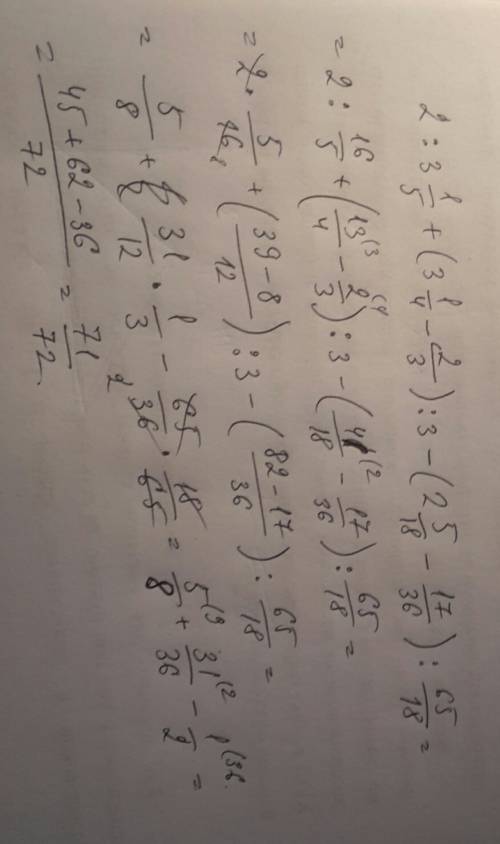 2 : 3 1/5 + (3 1/4 - 2/3) : 3 - (2 5/18 - 17/36) : 65/18 =
= 2 : 16/5 + (13/4 (3 - 2/3 (4) : 3 - (41/18 (2 - 17/36) : 65/18 =
= 2 · 5/16 8 + (39 - 8/12) : 3 - (82 - 17/36) : 65/18 =
= 5/8 + 31/12 · 1/3 - 65/36 2 · 18/65 = 5/8 (9 + 31/36 (2 - 1/2 (36 =
= 45 + 62 - 36/72 = 71/72.